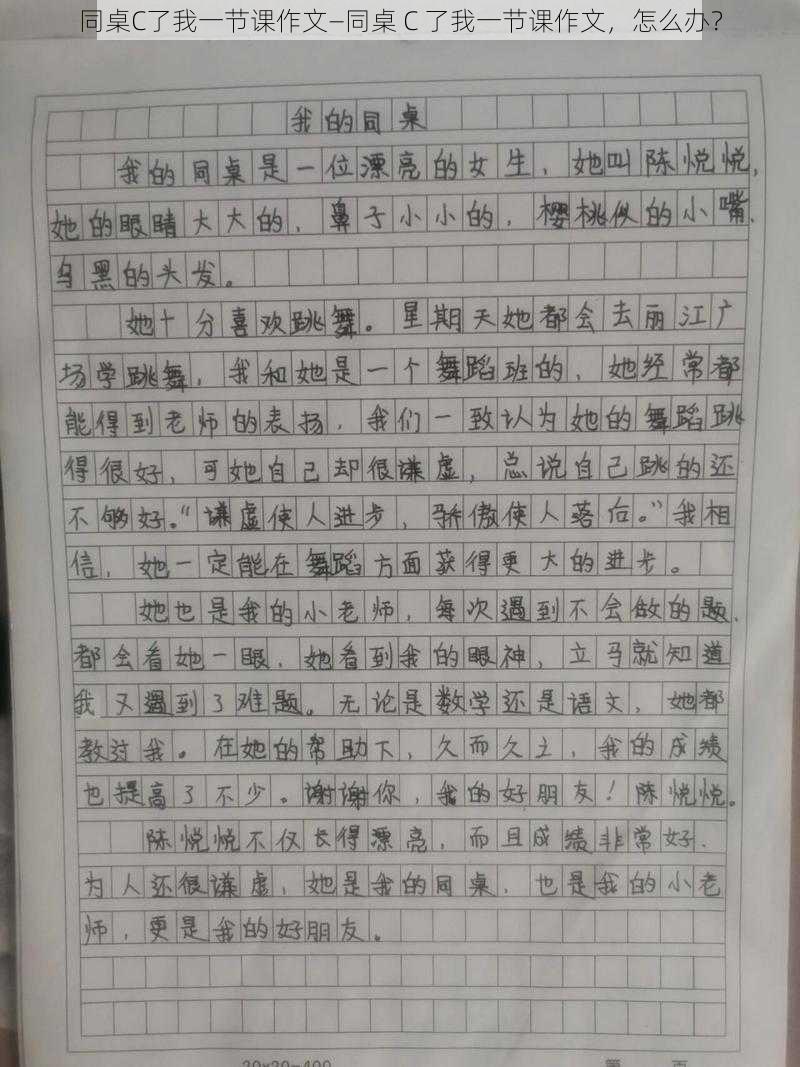 同桌C了我一节课作文—同桌 C 了我一节课作文，怎么办？
我的同桌
我的同桌是一位漂亮的女生，她叫陈悦悦，
她的眼睛大大的，鼻子小小的，樱桃似的小嘴，
乌黑的头发。
她十分喜欢跳舞。星期天她都会去丽江广
场学跳舞，我和她是一个舞蹈班的，她经常都
能得到老师的表扬，我们一致认为她的舞蹈跳
得很好，可她自己却很谦虚，总说自己跳的还
不够好。“谦虚使人进步，骄傲使人落后。”我相
信，她一定能在舞蹈方面获得更大的进步。
她也是我的小老师，每次遇到不会做的题，
都会看她一眼，她看到我的眼神，立马就知道
我又遇到了难题。无论是数学还是语文，她都
教过我。在她的帮助下，久而久之，我的成绩
也提高了不少。谢谢你，我的好朋友！陈悦悦。
陈悦悦不仅长得漂亮，而且成绩非常好，
为人还很谦虚，她是我的同桌，也是我的小老
师，更是我的好朋友。
20×20=400
第 页